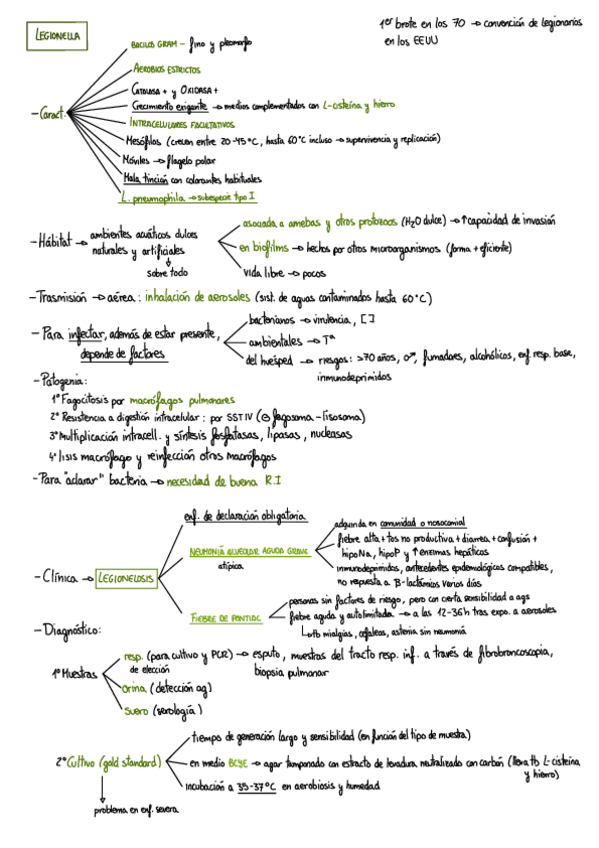 LEGIONELLA
1er brote en los 70 → convención de legionarios
en los EEUU
- Caract.
BACILOS GRAM - fino y pleomorfo
AEROBIOS ESTRICTOS
CATALASA + y OXIDASA +
Crecimiento exigente → medios complementados con L-cisteína y hierro
INTRACELULARES FACULTATIVOS
Mesófilos (crecen entre 20-45ºC, hasta 60ºC incluso → supervivencia y replicación)
Móviles → flagelo polar
Mala tinción con colorantes habituales
L. pneumophila → subespecie tipo I
- Hábitat → ambientes acuáticos dulces
naturales y artificiales
sobre todo
asociada a amebas y otros protozoos (H2O dulce) → ↑capacidad de invasión
en biofilms → hechos por otros microorganismos (forma + eficiente)
vida libre → pocos
- Trasmisión → aérea: inhalación de aerosoles (sist. de aguas contaminados hasta 60ºC)
- Para infectar, además de estar presente,
depende de factores
bacterianos → virulencia, [ ]
ambientales → Tª
del huésped → riesgos: >70 años, ♂, fumadores, alcohólicos, enf. resp. base,
inmunodeprimidos
- Patogenia:
1º Fagocitosis por macrófagos pulmonares
2º Resistencia a digestión intracelular: por SSTIV (⊖ fagosoma-lisosoma)
3º Multiplicación intracell. y síntesis fosfatasas, lipasas, nucleasas
4º lisis macrófago y reinfección otros macrófagos
- Para "aclarar" bacteria → necesidad de buena R.I
- Clínica → LEGIONELOSIS
enf. de declaración obligatoria
NEUMONÍA ALVEOLAR AGUDA GRAVE
atípica
adquirida en comunidad o nosocomial
fiebre alta + tos no productiva + diarrea + confusión +
hipoNa, hipoP y ↑enzimas hepáticas
inmunodeprimidos, antecedentes epidemiológicos compatibles,
no respuesta a β-lactámicos varios días
FIEBRE DE PONTIAC
personas sin factores de riesgo, pero con cierta sensibilidad a ags
fiebre aguda y autolimitada → a las 12-36h tras expo. a aerosoles
↳ tb mialgias, cefaleas, astenia sin neumonía
- Diagnóstico:
1º Muestras
resp. (para cultivo y PCR) → esputo, muestras del tracto resp. inf. a través de fibrobroncoscopia,
de elección
biopsia pulmonar
orina (detección ag)
suero (serología)
2º Cultivo (gold standard)
problema en enf. severa
tiempo de generación largo y sensibilidad (en función del tipo de muestra)
en medio BCYE → agar tamponado con extracto de levadura neutralizado con carbón (lleva tb L-cisteína
y hierro)
incubación a 35-37ºC en aerobiosis y humedad